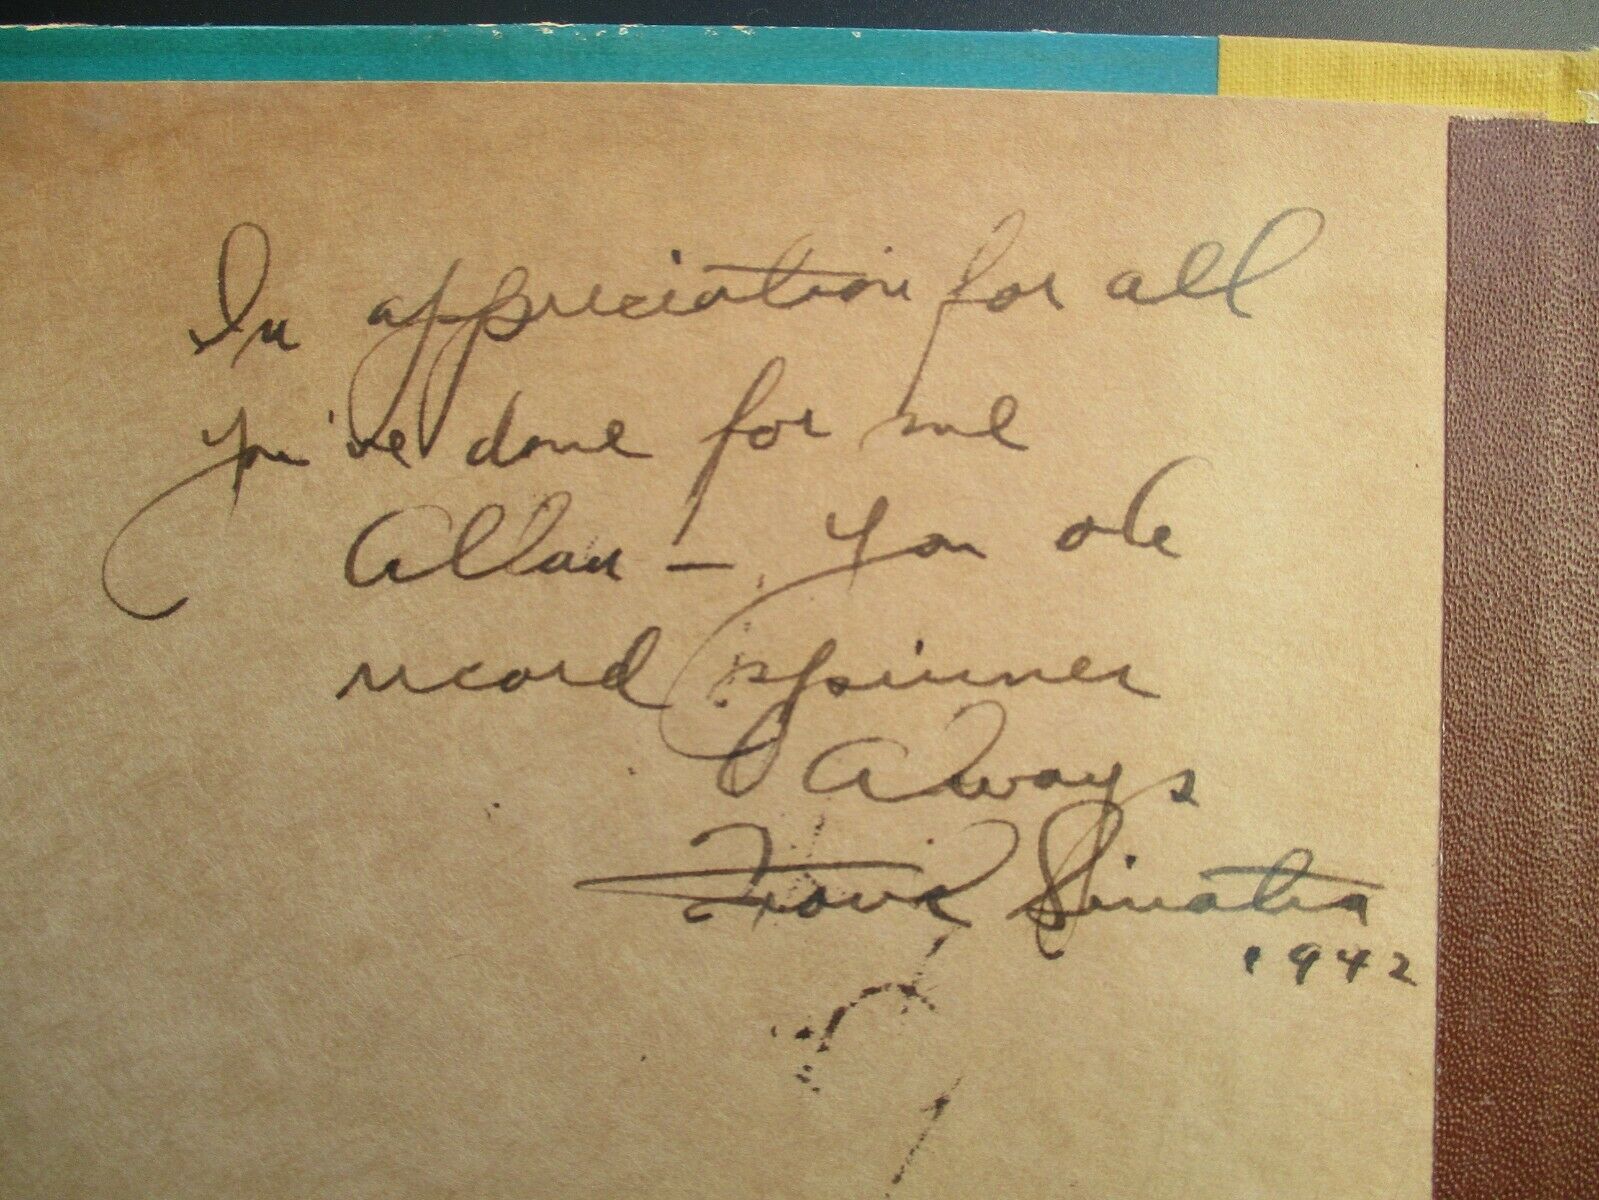 In appreciation for all
you've done for me
Allan — you ole
record spinner
Always
Frank Sinatra
1942